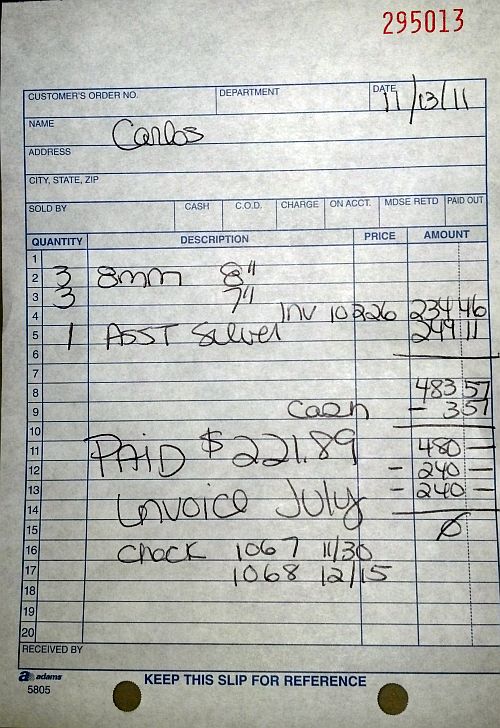 295013
CUSTOMER'S ORDER NO. DEPARTMENT DATE 11/13/11
NAME Carlos
ADDRESS
CITY, STATE, ZIP
SOLD BY CASH C.O.D. CHARGE ON ACCT. MDSE RETD PAID OUT
QUANTITY DESCRIPTION PRICE AMOUNT
1
2 3 8mm 8"
3 3 7"
4 Inv 10226 234 46
5 1 ASST Silver 249 11
6
7
8 483 57
9 Cash - 3 57
10
11 PAID $221.89 480 —
12 - 240 —
13 Invoice July - 240 —
14
15 Ø
16 Check 1067 11/30
17 1068 12/15
18
19
20
RECEIVED BY
a adams
5805
KEEP THIS SLIP FOR REFERENCE